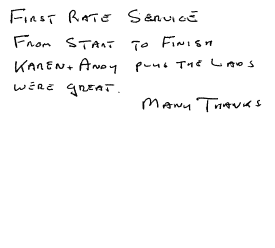 First Rate Service
From Start to Finish
Karen + Andy plus the Lads
were great.
Many Thanks